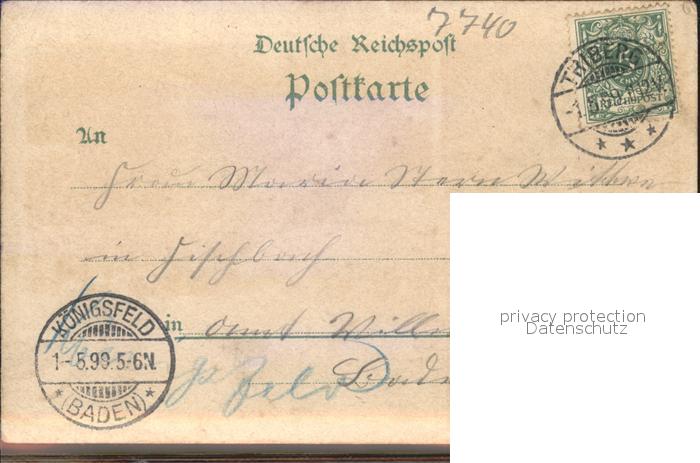 7740
Deutsche Reichspost
Postkarte
TRIBERG
REICHSPOST
An
Frau Maria Stern Witwe
in Fischbach
in Amt Ville
Baden
KÖNIGSFELD
1-5.99.5-6N.
* (BADEN) *
privacy protection
Datenschutz